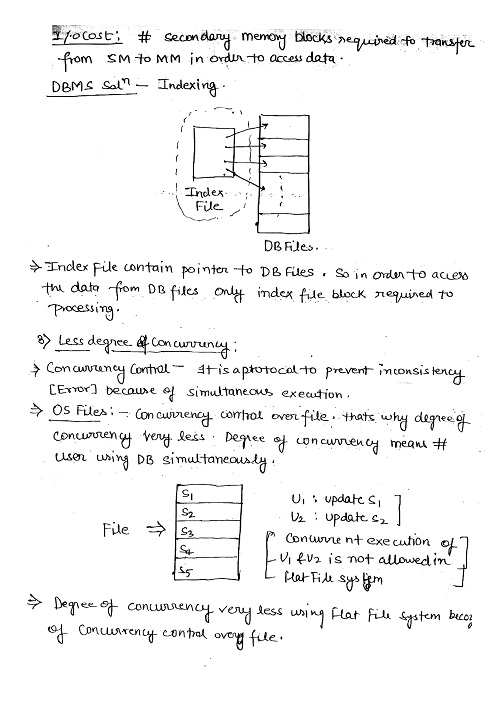 I/o cost: # secondary memory blocks required to transfer
from SM to MM in order to access data.
DBMS Solⁿ – Indexing.
Index
File
DB Files.
⇒ Index File contain pointer to DB Files. So in order to access
the data from DB files only index file block required to
processing.
3) Less degree of Concurrency:
→ Concurrency Control – It is a protocol to prevent inconsistency
[Error] because of simultaneous execution.
⇒ OS Files: – Concurrency control over file. thats why degree of
concurrency very less. Degree of concurrency means #
User using DB simultaneously.
File ⇒
S1
S2
S3
S4
S5
U1 : update S1
U2 : update S2
[Concurrent execution of
U1 & U2 is not allowed in
flat File system]
⇒ Degree of concurrency very less using Flat File system becoz
of Concurrency control over file.